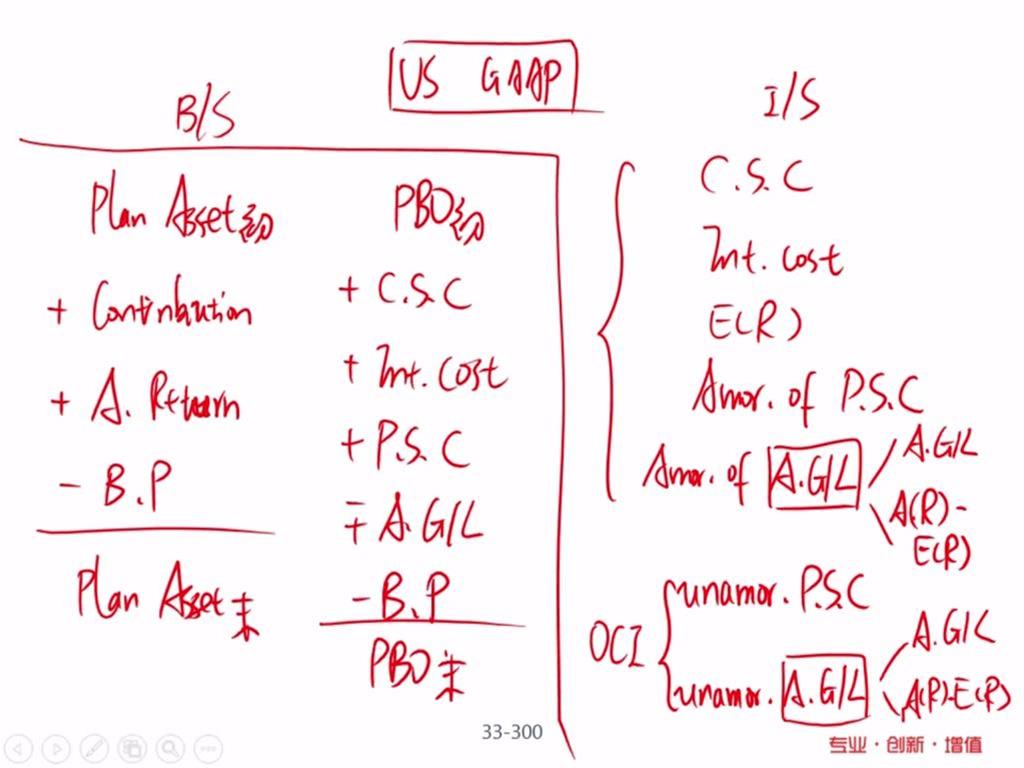 US GAAP
B/S
I/S
Plan Asset初
+ Contribution
+ A. Return
- B.P
Plan Asset末
PBO初
+ C.S.C
+ Int. cost
+ P.S.C
∓ A.G/L
- B.P
PBO末
C.S.C
Int. cost
E(R)
Amor. of P.S.C
Amor. of A.G/L
A.G/L
A(R)-
E(R)
OCI
unamor. P.S.C
unamor. A.G/L
A.G/L
A(R)-E(R)
33-300
专业·创新·增值